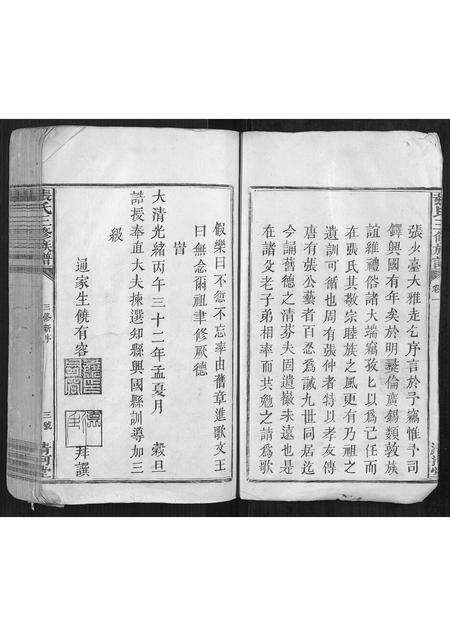 張氏三修族譜 卷一
張火臺大雅走乞序言於予竊惟予司
鐸興國有年矣於明彝倫廣錫類敦族
誼維禮俗諸大端竊孜匕以爲己任而
在張氏其敬宗睦族之風更有乃祖之
遺訓可循也周有張仲者特以孝友傳
唐有張公藝者百忍爲誡九世同居迄
今誦舊德之清芬夫固遺徽未遠也是
在諸父老子弟相率而共勉之請爲歌
清河堂
假樂曰不愆不忘率由舊章進歌文王
曰無念爾祖聿修厥德
旹
大清光緒丙午三十二年孟夏月 穀旦
誥授奉直大夫揀選知縣興國縣訓導加三
級
通家生饒有容
拜譔
張氏三修族譜
三修新序
三號
清河堂